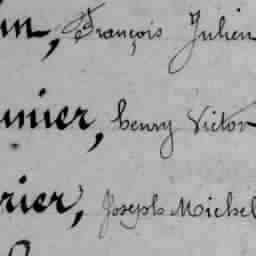 in, François Julien
unier, henry Victor
rier, Joseph Michel